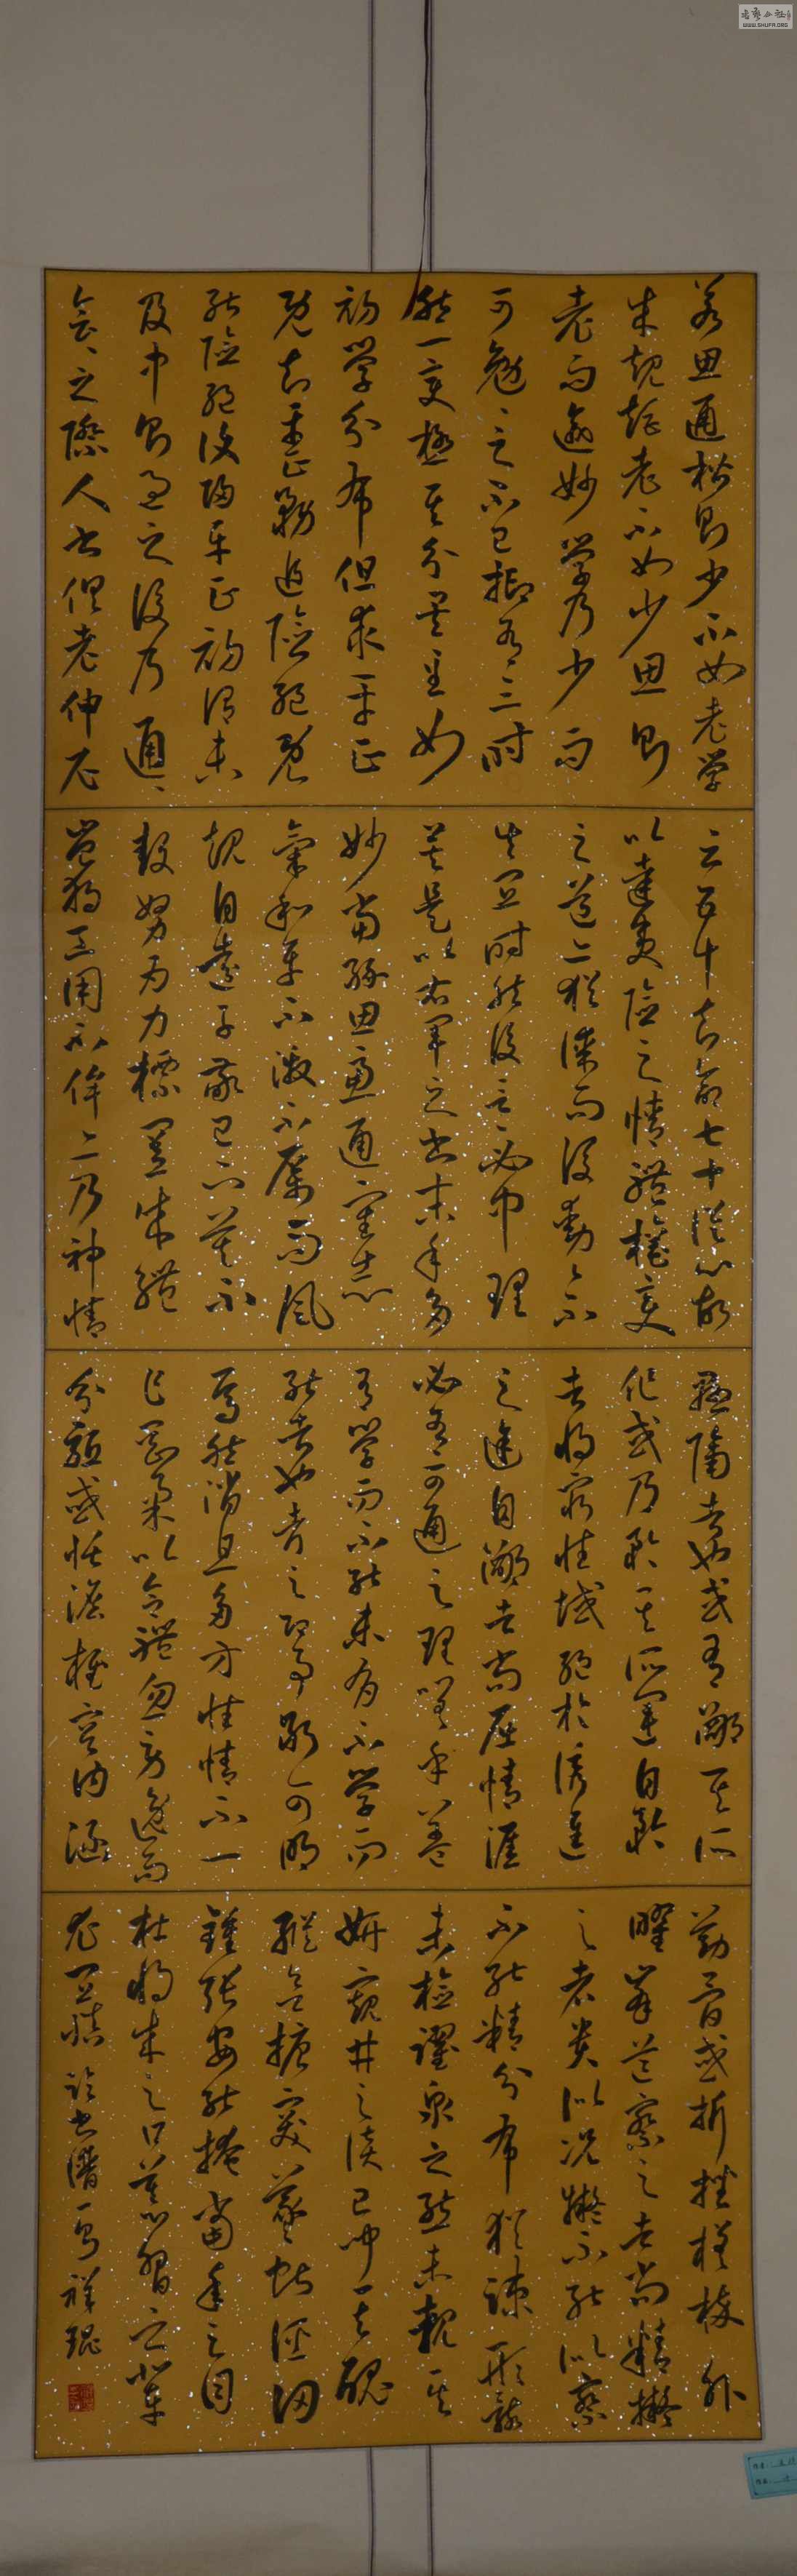 若思通楷則少不如老學
成規矩老不如少思則
老而逾妙學乃少而
可勉勉之不已抑有三時
然一變極其分矣至如
初學分布但求平正
既知平正務追險絕既
能險絕復歸平正初謂未
及中則過之後乃通通
會之際人書俱老仲尼
云五十知命七十從心故
以達夷險之情體權變
之道亦猶謀而後動動不
失宜時然後言言必中理
矣是以右軍之書末年多
妙當緣思慮通審志
氣和平不激不厲而風
規自遠子敬已下莫不
鼓努為力標置成體
豈獨工用不侔亦乃神情
懸隔者也或有鄙其所
作或乃矜其所運自矜
者將窮性域絕於誘進
之途自鄙者尚屈情涯
必有可通之理嗟乎蓋
有學而不能未有不學而
能者也考之即事斷可明
焉然消息多方性情不一
乍剛柔以合體忽勞逸而
分驅或恬澹雍容內涵
筋骨或折挫槎枿外
曜峯芒察之者尚精擬
之者貴似況擬不能似察
不能精分布猶疎形骸
未檢躍泉之態未覩其
妍窺井之談已聞其醜
縱欲搪突羲獻誣罔
鍾張安能掩當年之目
杜將來之口慕習之輩
尤宜慎諸書譜一 祥琨
書藝公社
WWW.SHUFA.ORG